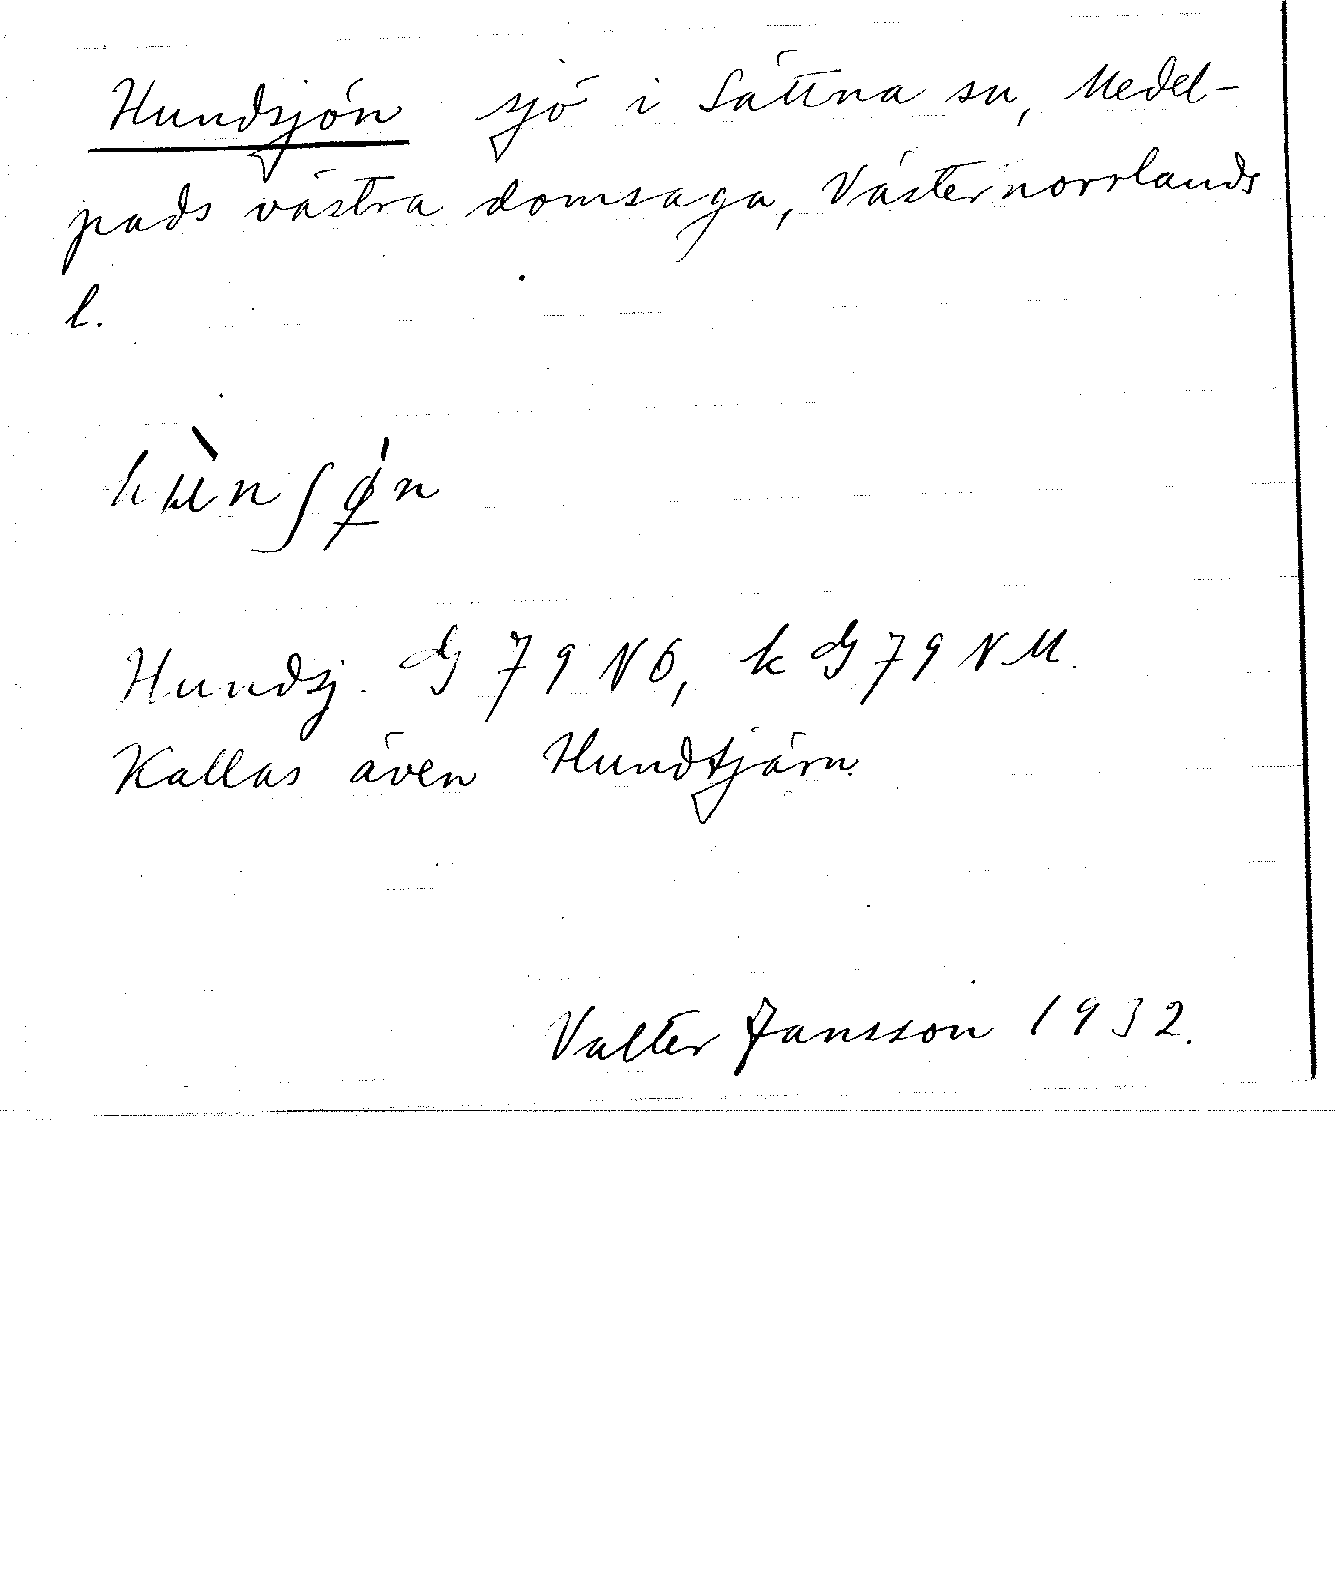 Hundsjön sjö i Sättna sn, Medel-
pads västra domsaga, Västernorrlands
l.
Hundsj. G 79 NÖ, k G 79 NM.
Kallas även Hundtjärn.
Valter Jansson 1932.